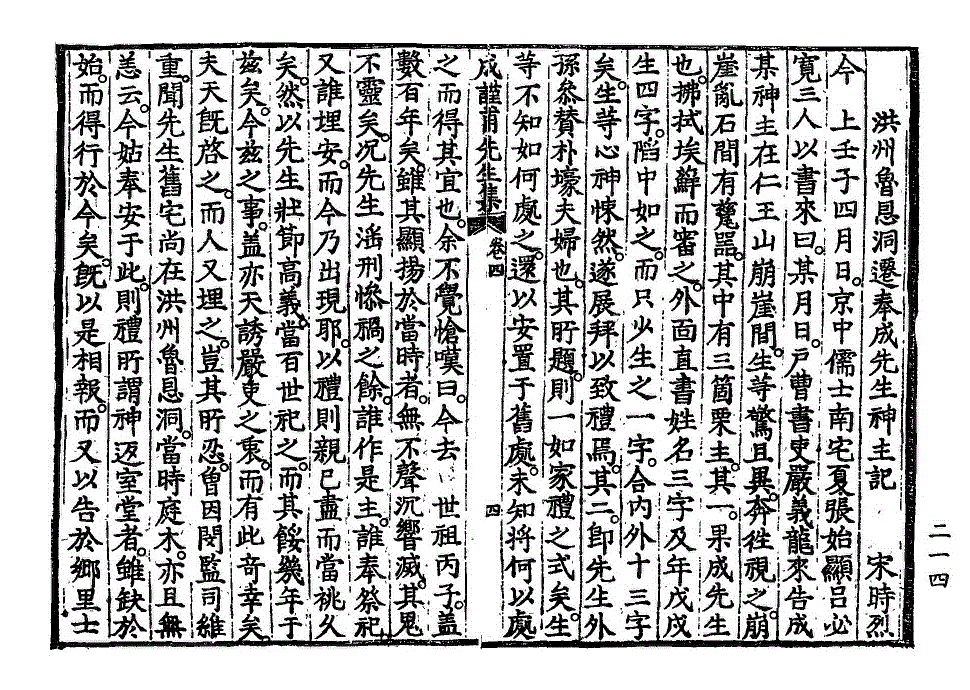 洪州魯恩洞遷奉成先生神主記 宋時烈
今 上壬子四月日。京中儒士南宅夏張始顯呂必
寬三人以書來曰。某月日。戶曹書吏嚴義龍來告成
某神主在仁王山崩崖間。生等驚且異。奔徃視之。崩
崖亂石間有甕器。其中有三箇栗主。其一。果成先生
也。拂拭埃蘚而審之。外面直書姓名三字及年戊戌
生四字。陷中如之。而只少生之一字。合內外十三字
矣。生等心神悚然。遂展拜以致禮焉。其二。卽先生外
孫參贊朴壕夫婦也。其所題。則一如家禮之式矣。生
等不知如何處之。還以安置于舊處。未知將何以處
成謹甫先生集 卷四 四
之而得其宜也。余不覺愴嘆曰。今去 世祖丙子。蓋
數百年矣。雖其顯揚於當時者。無不聲沉響滅。其鬼
不靈矣。况先生滛刑慘禍之餘。誰作是主。誰奉祭祀。
又誰埋安。而今乃出現耶。以禮則親已盡而當祧久
矣。然以先生壯節高義。當百世祀之。而其餒幾年于
玆矣。今玆之事。盖亦天誘嚴吏之衷。而有此奇幸矣。
夫天旣啓之。而人又埋之。豈其所忍。曾因閔監司維
重。聞先生舊宅尙在洪州魯恩洞。當時庭木。亦且無
恙云。今姑奉安于此。則禮所謂神返室堂者。雖缺於
始。而得行於今矣。旣以是相報。而又以告於鄕里士
二一四